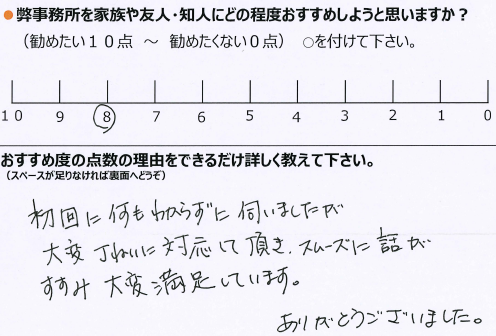 ●弊事務所を家族や友人・知人にどの程度おすすめしようと思いますか？
（勧めたい１０点　～　勧めたくない０点）　○を付けて下さい。
10 9 8 7 6 5 4 3 2 1 0
おすすめ度の点数の理由をできるだけ詳しく教えて下さい。
（スペースが足りなければ裏面へどうぞ）
初回に何もわからずに伺いましたが
大変丁ねいに対応して頂き、スムーズに話が
すすみ大変満足しています。
ありがとうございました。